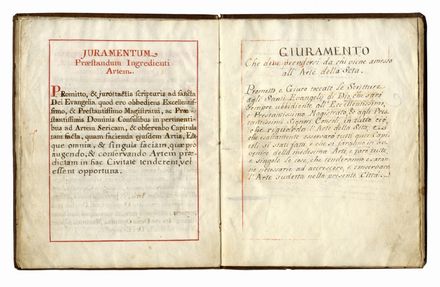 JURAMENTUM
Præstandum Ingredienti
Artem.
PRomitto, & juro tactis scripturis ad sancta
Dei Evangelia, quod ero obbediens Excellentis-
simo, & Prestantissimo Magistratui, ac Præ-
stantissimis Dominis Consulibus in pertinenti-
bus ad Artem Sericam, & observabo Capitula
jam facta, quam facienda ejusdem Artis, Es-
que omnia, & singula faciam, quæ pro
augendo, & conservando Artem præ-
dictam in hac Civitate tenderent, vel
essent opportuna.
GIURAMENTO
Che deve prendersi da chi viene ammesso
all' Arte della Seta.
Prometto, e Giuro toccate le Scritture
agli Santi Evangelj di Dio, che sarò
sempre obbediente all' Eccellentissimo,
e Prestantissimo Magistrato, & agli Pre-
stantissimi Signori Consoli in tutto ciò,
che riguarda l'Arte della Seta, e
che esattamente osserverò tutti quei Capi-
toli si stati fatti, e che si faranno in av-
venire della medesima Arte, e farò tutte,
e singole le cose, che tenderanno, e saran-
no necessarie ad accrescere, e conservare
l'Arte sudetta nella presente Città.